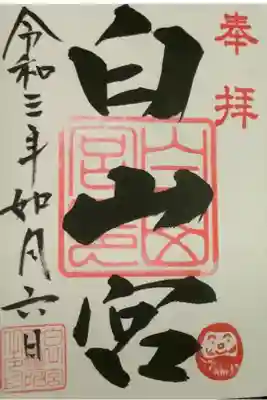 奉拝
白山宮
令和三年如月六日